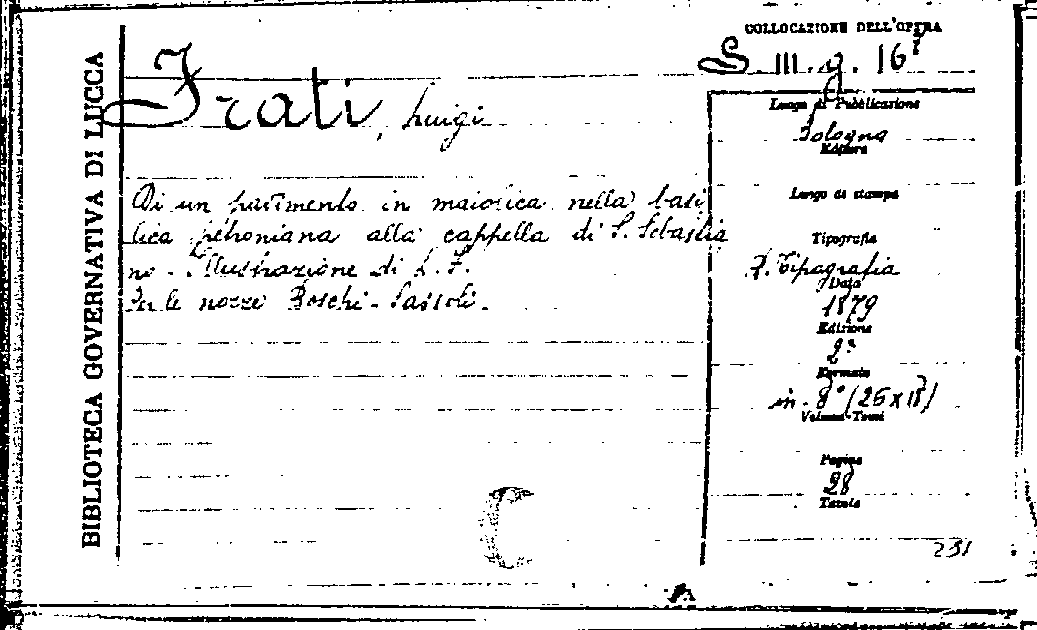 BIBLIOTECA GOVERNATIVA DI LUCCA
Frati, Luigi
Di un pavimento in maiolica nella basi
lica petroniana alla cappella di S. Sebastia
no - Illustrazione di L. F.
Per le nozze Boschi-Sassoli.
C
COLLOCAZIONE DELL'OPERA
S. III. g. 16
Luogo di Pubblicazione
Bologna
Editore
Luogo di stampa
Tipografia
R. Tipografia
Data
1879
Edizione
2ª
Formato
in-8° (26 x
Volumi-Tomi
Pagine
28
Tavole
251